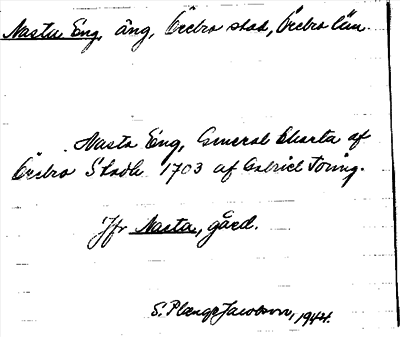 Nasta Äng, äng, Örebro stad, Örebro län.
Nasta Eng, General Charta af
Örebro Stadh 1703 af Gabriel Toring.
Jfr Nasta, gård.
S. Plange Jacobson, 1944.